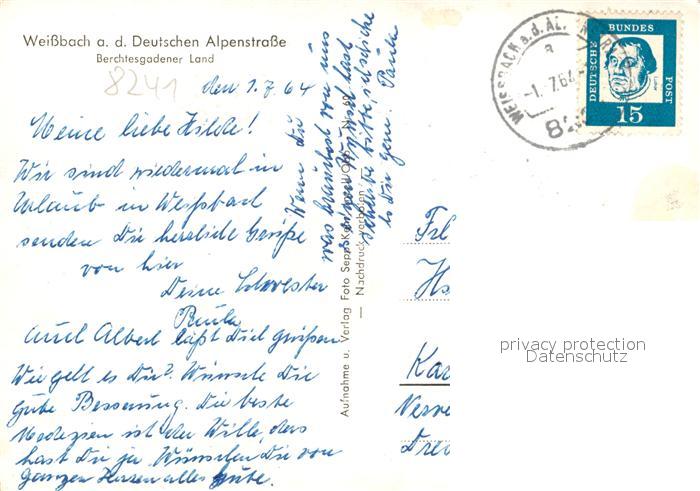 Weißbach a. d. Deutschen Alpenstraße
Berchtesgadener Land
8241
den 1.7.64
Meine liebe Hilde!
Wir sind wiedermal in
Urlaub in Weißbach
senden Dir herzliche Grüße
von hier
Deine Schwester
Paula
Auch Albert läßt Dich grüßen
Wie geht es Dir? Wünsche Dir
gute Besserung. Die beste
Medizien ist der Wille, das
hast Du ja. Wünschen Dir von
ganzen Herzen alles gute.
Wenn Du
was brauchst von uns
schreibe bitte, ich schicke
es Dir gern. Paula
Aufnahme u. Verlag Foto Sepp
Nachdruck verboten
WEISSBACH a. d. AL
a
-1. 7.64
82
DEUTSCHE BUNDES POST
15
Frl
Kar
privacy protection
Datenschutz